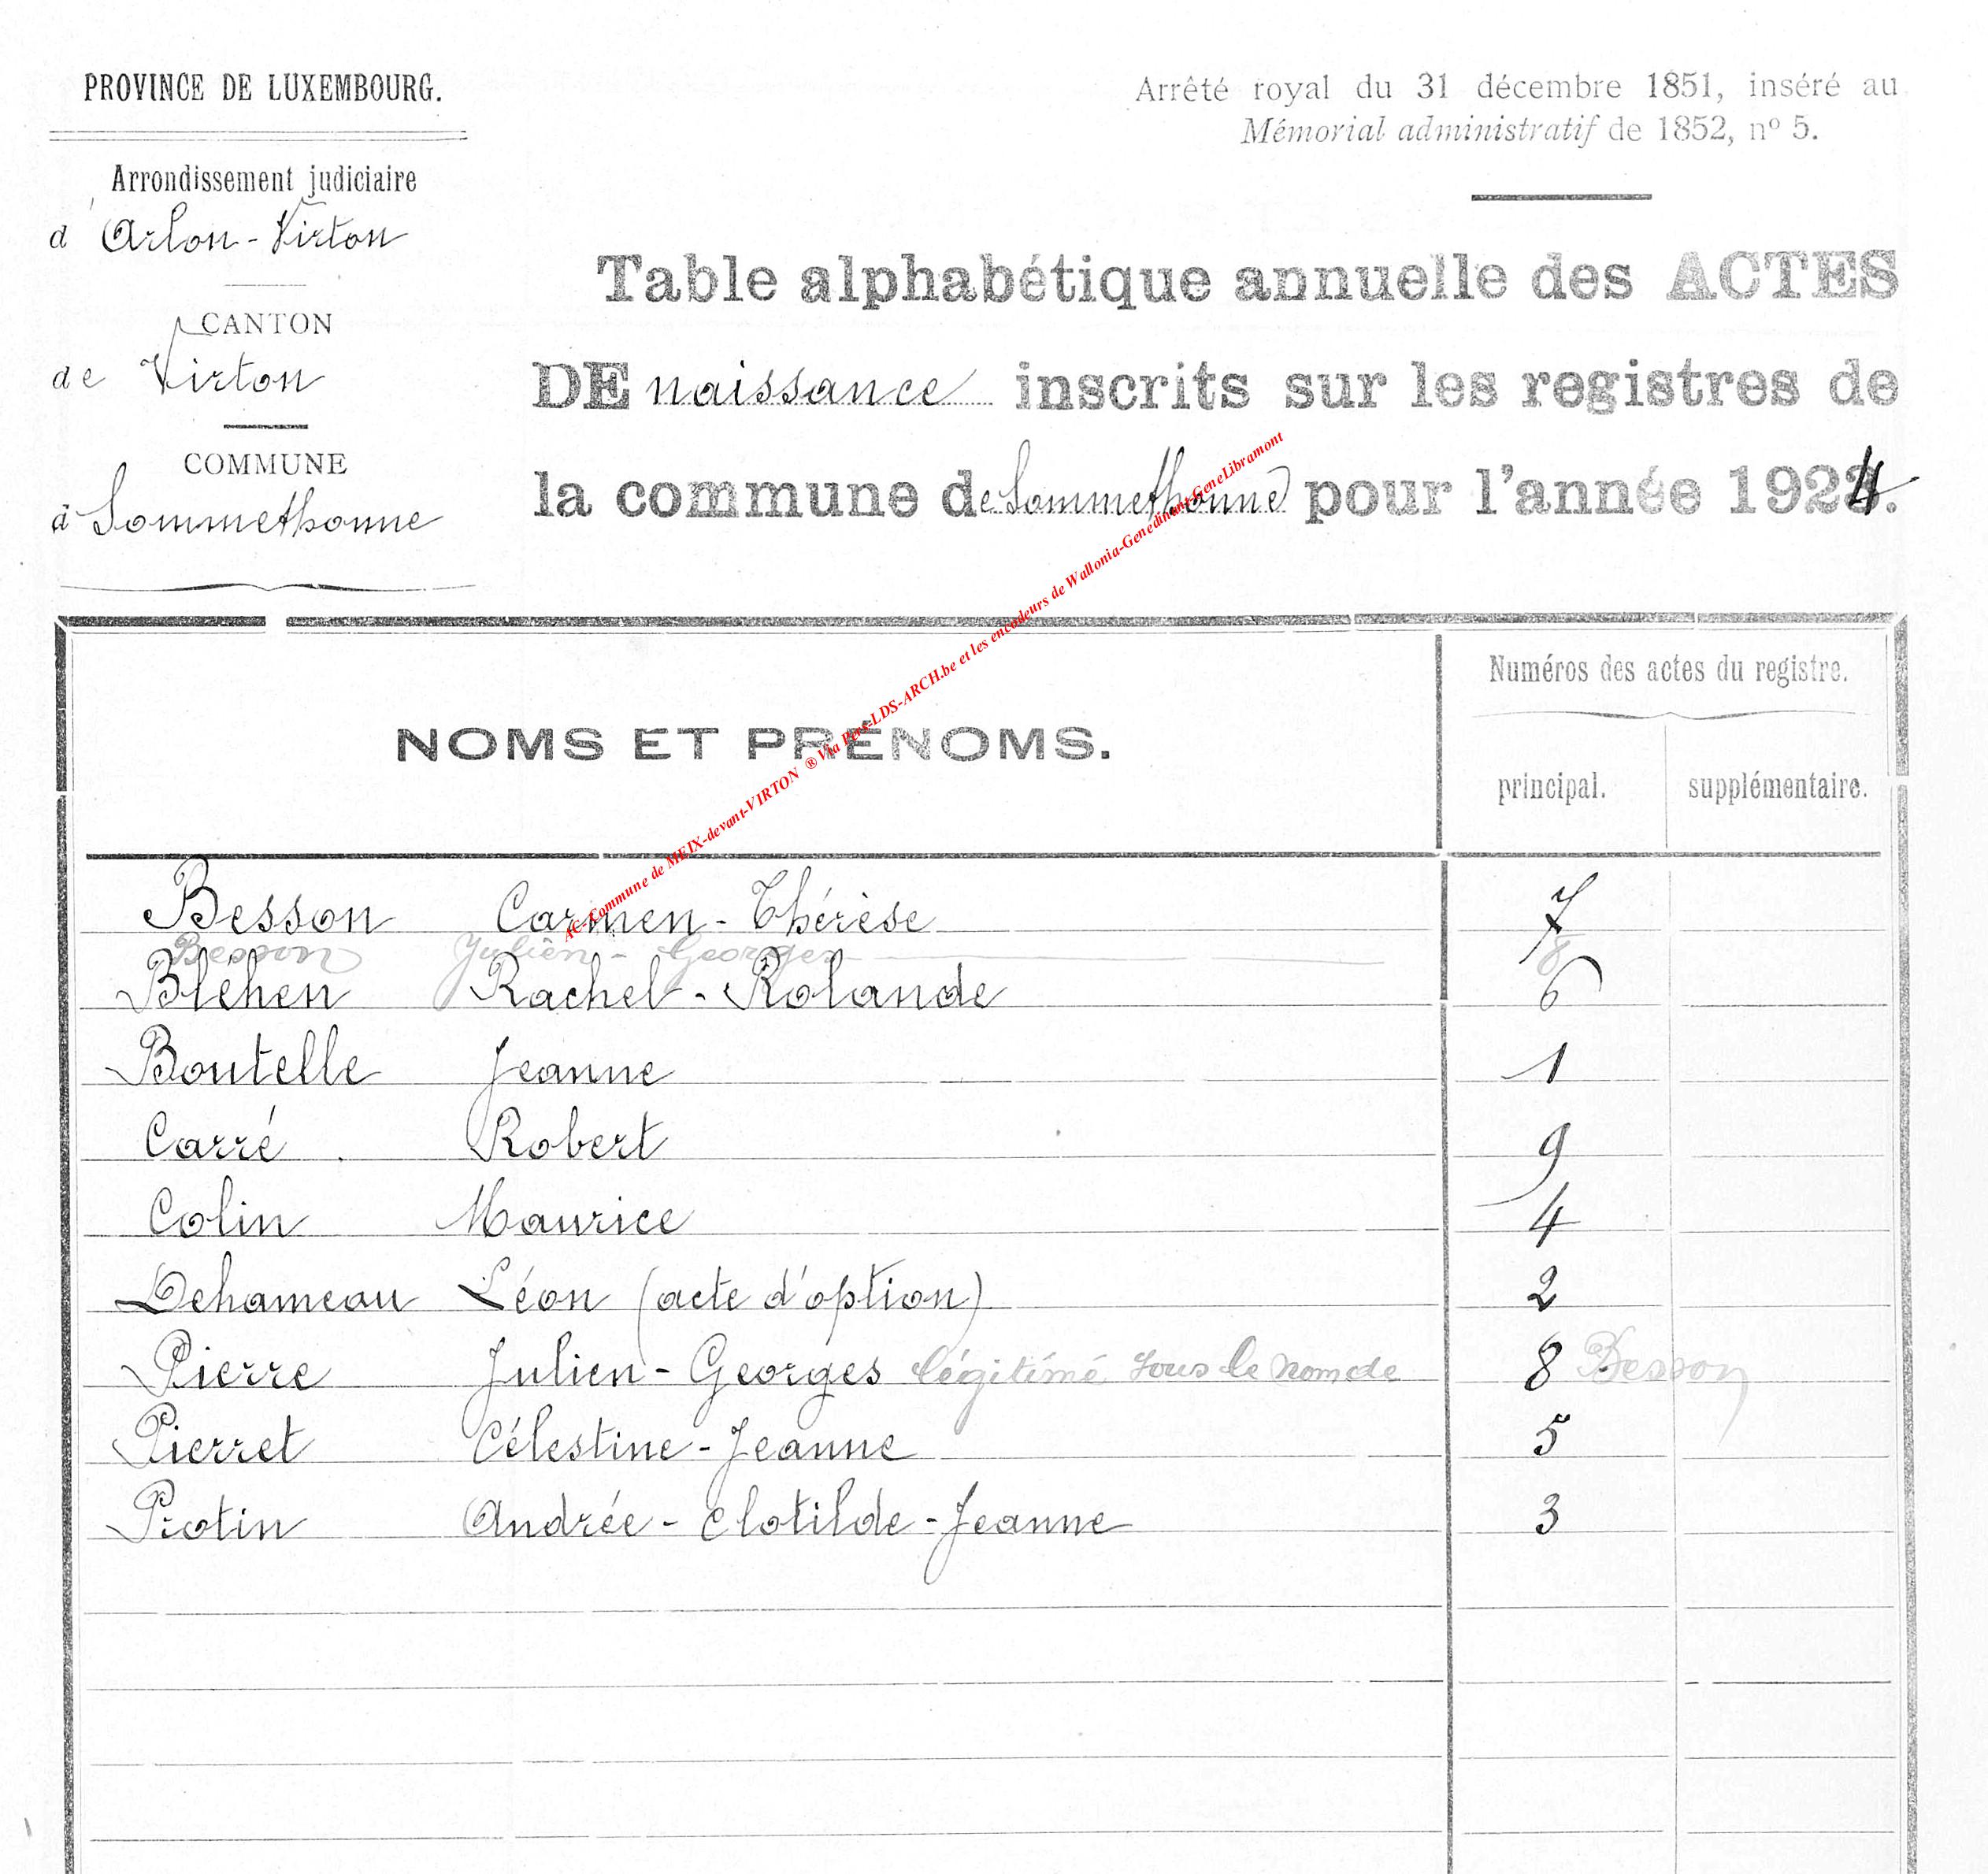 PROVINCE DE LUXEMBOURG.
Arrondissement judiciaire
d'Arlon-Virton
CANTON
de Virton
COMMUNE
à Sommethonne
Arrêté royal du 31 décembre 1851, inséré au
Mémorial administratif de 1852, nº 5.
Table alphabétique annuelle des ACTES
DE naissance inscrits sur les registres de
la commune de Sommethonne pour l'année 1924.
NOMS ET PRÉNOMS.
Numéros des actes du registre.
principal. supplémentaire.
AC-Commune de MEIX-devant-VIRTON ® Via Pers-LDS-ARCH.be et les encodeurs de Wallonia-Genedinant-GeneLibramont
Besson Carmen-Thérèse 7
Besson Julien-Georges 8
Bléhen Rachel-Rolande 6
Boutelle Jeanne 1
Carré Robert 9
Colin Maurice 4
Dehameau Léon (acte d'option) 2
Pierre Julien-Georges légitimé sous le nom de 8 Besson
Pierret Célestine-Jeanne 5
Protin Andrée-Clotilde-Jeanne 3